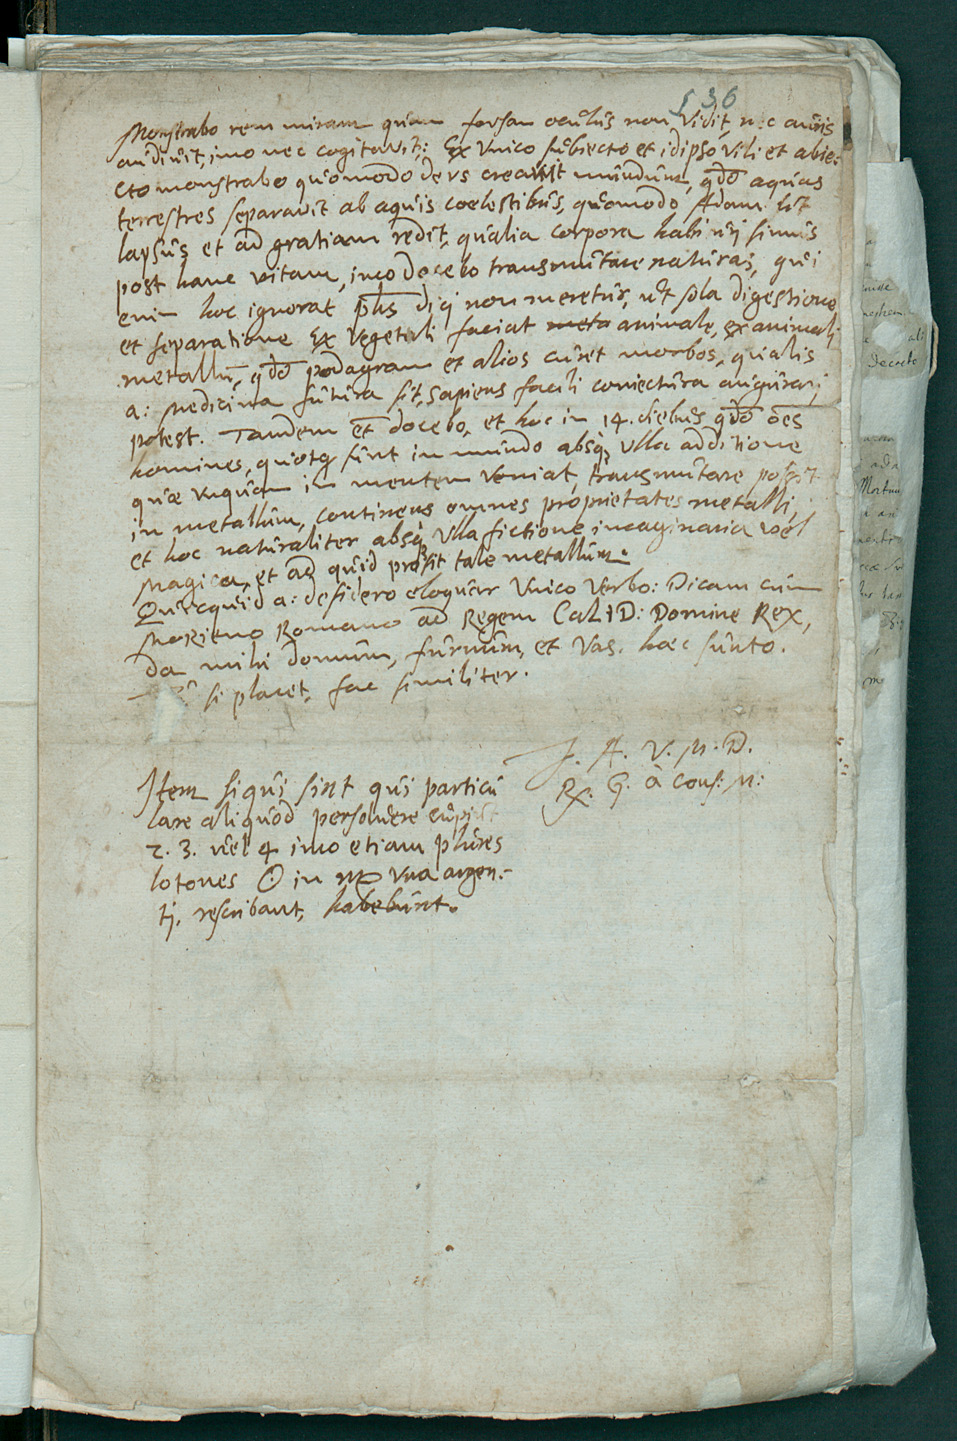 536
Monstrabo rem miram quam forsan oculus non vidit, nec auris
audivit, imo nec cogitavit: Ex vnico subiecto et id ipso vili et abie:
cto monstrabo quomodo deus creavit mundum, qdo aquas
terrestres separavit ab aquis coelestibus, quomodo Adam sit
lapsus et ad gratiam redit, qualia corpora habituri simus
post hanc vitam, imo docebo transmutare naturas, qui
enim hoc ignorat phs dici non meretur, ut sola digestione
et separatione Ex vegetali faciat animale, ex animali
metallum, qdo podagram et alios curet morbos, qualis
a: medicina futura sit, sapiens facili coniectura augurari
potest. Tandem et docebo, et hoc in 14. diebus qdo oes
homines, quotq sunt in mundo absq, vlla additione
quae vnquam in mentem veniat, transmutare possit
in metallum, continens omnes proprietates metalli,
et hoc naturaliter absq vlla fictione imaginaria vel
magica, et ad quid prosit tale metallum.
Quicquid a: desidero eloquar vnico verbo: Dicam cum
MORIENO Romano ad Regem CALID: Domine Rex,
da mihi domum, furnum, et vas. haec sunto.
si placet, fac similiter.
J. A. V. M. D.
Rx. G. à Cons: M:
Item si qui sint qui particu
lare aliquod persolvere cupiunt
2. 3. vel 4 imo etiam plures
lotones ☉ in vna argen:
tj, rescribant, habebunt.